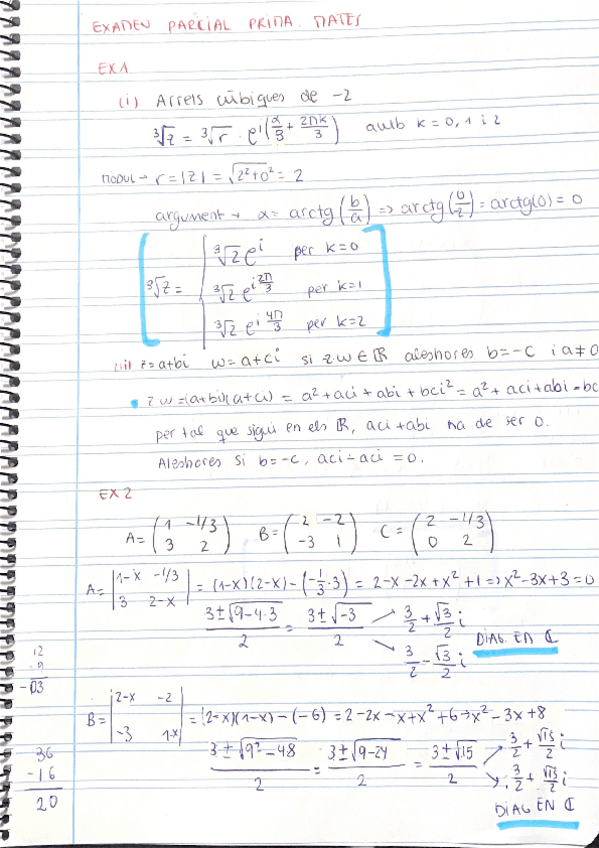 EXAMEN PARCIAL PRIMA. MATES
EX 1
(i) Arrels cúbiques de -2
∛z = ∛r · e^i(α/3 + 2πk/3) amb k = 0, 1 i 2
mòdul → r = |z| = √(2²+0²) = 2
argument → α = arctg (b/a) => arctg (0/2) = arctg(0) = 0
∛z = { ∛2 e^i per k=0
∛2 e^(i 2π/3) per k=1
∛2 e^(i 4π/3) per k=2
(ii) z=a+bi w=a+ci si zw ∈ ℝ aleshores b=-c i a≠0
• zw=(a+bi)(a+ci) = a²+aci+abi+bci² = a²+aci+abi-bc
per tal que sigui en els ℝ, aci+abi ha de ser 0.
Aleshores si b=-c, aci-aci = 0.
EX 2
A = (1 -1/3; 3 2) B = (2 -2; -3 1) C = (2 -1/3; 0 2)
A = |1-x -1/3; 3 2-x| = (1-x)(2-x)-(-1/3·3) = 2-x-2x+x²+1 => x²-3x+3=0
(3±√(9-4·3))/2 = (3±√-3)/2 ↗ 3/2 + √3/2 i
↘ 3/2 - √3/2 i
DIAG. EN ℂ
12
-9
-03
B = |2-x -2; -3 1-x| = (2-x)(1-x)-(-6) = 2-2x-x+x²+6 → x²-3x+8
(3±√(9²-48))/2 = (3±√(9-24))/2 = (3±√15)/2 ↗ 3/2 + √15/2 i
↘ 3/2 + √15/2 i
DIAG EN ℂ
36
-16
20